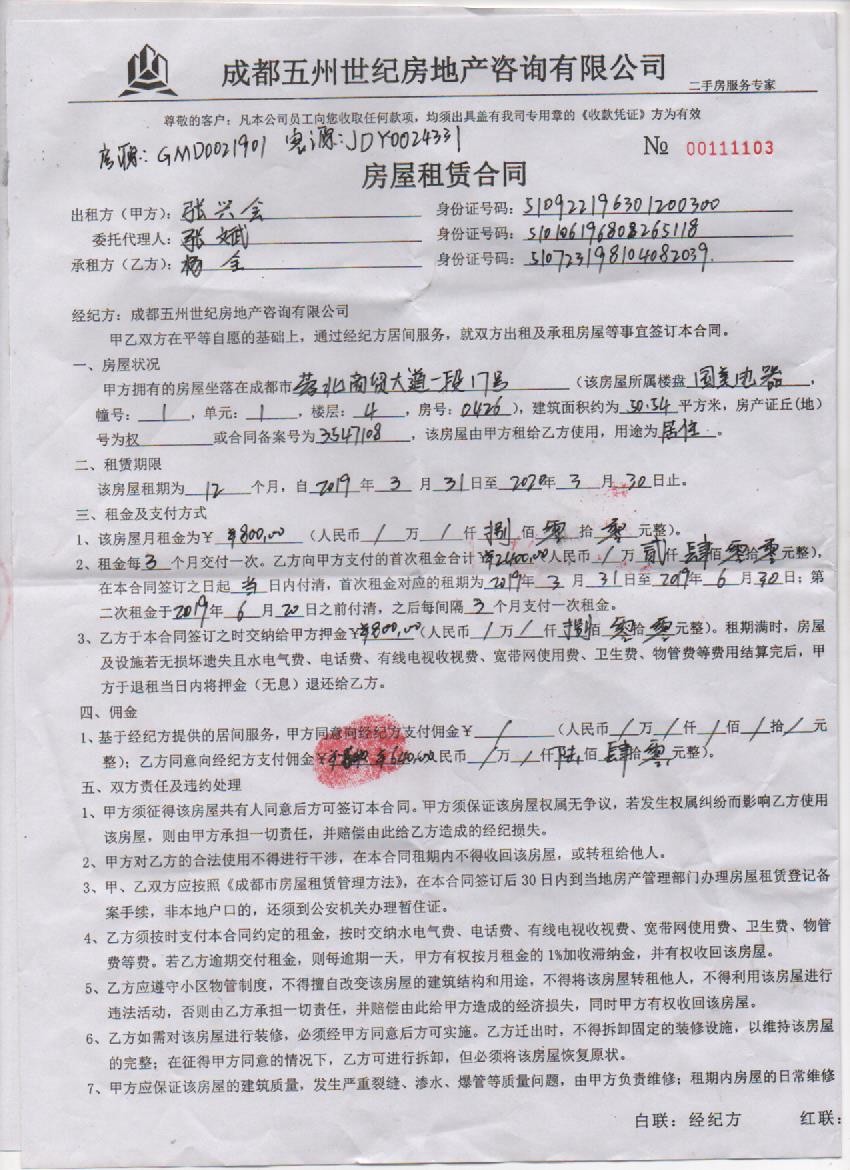 成都五州世纪房地产咨询有限公司
二手房服务专家
尊敬的客户：凡本公司员工向您收取任何款项，均须出具盖有我司专用章的《收款凭证》方为有效
房源：GMD0021901 客源：JDY0024331
№ 00111103
房屋租赁合同
出租方（甲方）：张兴会 身份证号码：510922196301200300
委托代理人：张斌 身份证号码：510106196808265118
承租方（乙方）：杨全 身份证号码：510723198104082039.
经纪方：成都五州世纪房地产咨询有限公司
甲乙双方在平等自愿的基础上，通过经纪方居间服务，就双方出租及承租房屋等事宜签订本合同。
一、房屋状况
甲方拥有的房屋坐落在成都市蓉北商贸大道一段17号（该房屋所属楼盘国美电器，
幢号：1，单元：1，楼层：4，房号：0426），建筑面积约为50.54平方米，房产证丘（地）
号为权 或合同备案号为3547108，该房屋由甲方租给乙方使用，用途为居住。
二、租赁期限
该房屋租期为12个月，自2019年3月31日至2020年3月30日止。
三、租金及支付方式
1、该房屋月租金为￥¥800.00（人民币/万/仟捌佰零拾零元整）。
2、租金每3个月交付一次。乙方向甲方支付的首次租金合计￥¥2400.00人民币/万贰仟肆佰零拾零元整），
在本合同签订之日起当日内付清，首次租金对应的租期为2019年3月31日至2019年6月30日；第
二次租金于2019年6月20日之前付清，之后每间隔3个月支付一次租金。
3、乙方于本合同签订之时交纳给甲方押金￥¥800.00（人民币/万/仟捌佰零拾零元整）。租期满时，房屋
及设施若无损坏遗失且水电气费、电话费、有线电视收视费、宽带网使用费、卫生费、物管费等费用结算完后，甲
方于退租当日内将押金（无息）退还给乙方。
四、佣金
1、基于经纪方提供的居间服务，甲方同意向经纪方支付佣金￥/（人民币/万/仟/佰/拾/元
整）；乙方同意向经纪方支付佣金￥ ¥640.00人民币/万/仟陆佰肆拾零元整）。
五、双方责任及违约处理
1、甲方须征得该房屋共有人同意后方可签订本合同。甲方须保证该房屋权属无争议，若发生权属纠纷而影响乙方使用
该房屋，则由甲方承担一切责任，并赔偿由此给乙方造成的经纪损失。
2、甲方对乙方的合法使用不得进行干涉，在本合同租期内不得收回该房屋，或转租给他人。
3、甲、乙双方应按照《成都市房屋租赁管理方法》，在本合同签订后30日内到当地房产管理部门办理房屋租赁登记备
案手续，非本地户口的，还须到公安机关办理暂住证。
4、乙方须按时支付本合同约定的租金，按时交纳水电气费、电话费、有线电视收视费、宽带网使用费、卫生费、物管
费等费。若乙方逾期交付租金，则每逾期一天，甲方有权按月租金的1%加收滞纳金，并有权收回该房屋。
5、乙方应遵守小区物管制度，不得擅自改变该房屋的建筑结构和用途，不得将该房屋转租他人，不得利用该房屋进行
违法活动，否则由乙方承担一切责任，并赔偿由此给甲方造成的经济损失，同时甲方有权收回该房屋。
6、乙方如需对该房屋进行装修，必须经甲方同意后方可实施。乙方迁出时，不得拆卸固定的装修设施，以维持该房屋
的完整；在征得甲方同意的情况下，乙方可进行拆卸，但必须将该房屋恢复原状。
7、甲方应保证该房屋的建筑质量，发生严重裂缝、渗水、爆管等质量问题，由甲方负责维修；租期内房屋的日常维修
白联：经纪方 红联：